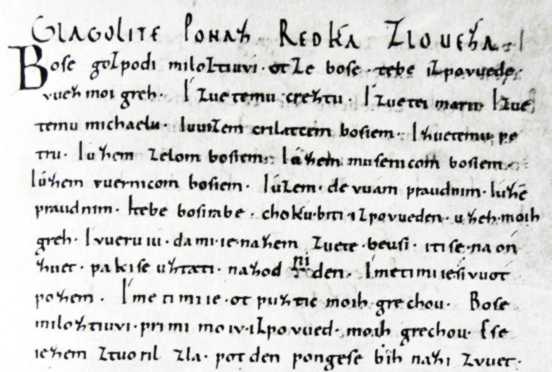 GLAGOLITE PONAZ REDKA ZLOUEZA. I
Bose gozpodi miloztiuvi. otze bose. tebe izpovuede
vuez moi greh. I zuetemu creztu. I zuetei marii. I zue
temu michaelu. Iuuizem crilatcem bosiem. I zuetemu pe
tru. Iuzem zelom bosiem. Iuzem musenicom bosiem.
Iuzem vuernicom bosiem. Iuzem. devuam praudnim. Iuze
praudnim. I tebe bosirabe. chokubiti. izpovueden. uzeh. moih
greh. I vueruiu. da mi. ie. nazem. zuete. beusi. iti se. na on
zuet. pakise uztati. na zod ni den. I meti mi ie. zivuot
po zem. I meti mi ie. ot puztic moih. grechou. Bose
miloztiuvi. primi moiv. izpovued. moih grechou. Ese
iezem ztuoril zla. pot den pongese bih na zi zvuet.